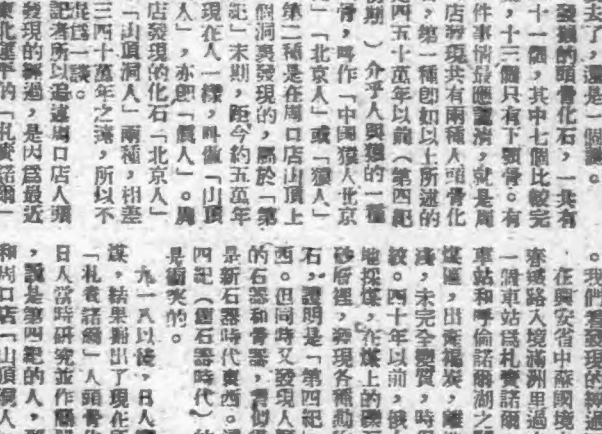 去了，還是一個謎。
發現的頭骨化石，一共有
十一個，其中七個比較完
，十三個只有下顎骨。有
件事情最應認清，就是周
店發現共有兩種人頭骨化
，第一種卽如以上所述的
四五十萬年以前（第四紀
初期）介乎人與猿的一種
骨，叫作「中國猿人北京
」「北京人」或「猿人」
第二種是在周口店山頂上
個洞裏發現的，屬於「第
紀」末期，距今約五萬年
現在人一樣，叫做「山頂
人」，亦卽「眞人」。周
店發現的化石「北京人」
「山頂洞人」兩種，相差
三四十萬年之遠，所以不
混爲一談。
記者所以追述周口店人頭
發現的經過，是因爲最近
東北運平的「札賚諾爾」
。我們看發現的經過
在興安省中蘇國境
春鐵路入境滿洲里過
一個車站爲札賚諾爾
車站和呼倫諾爾湖之
煤礦，出產褐炭，離
淺，未完全變質，時
紋。四十年以前，俄
地採煤，在煤上的礫
砂層裡，發現各種動
石，證明是「第四紀
西。但同時又發現人
的石器和骨器，看似
是新石器時代東西。
四紀（舊石器時代）
是衝突的。
九一八以後，日人
煤，結果掘出了現在
「札賚諾爾」人頭骨化
日人當時研究並作簡
，說是第四紀的人，
和周口店「山頂洞人